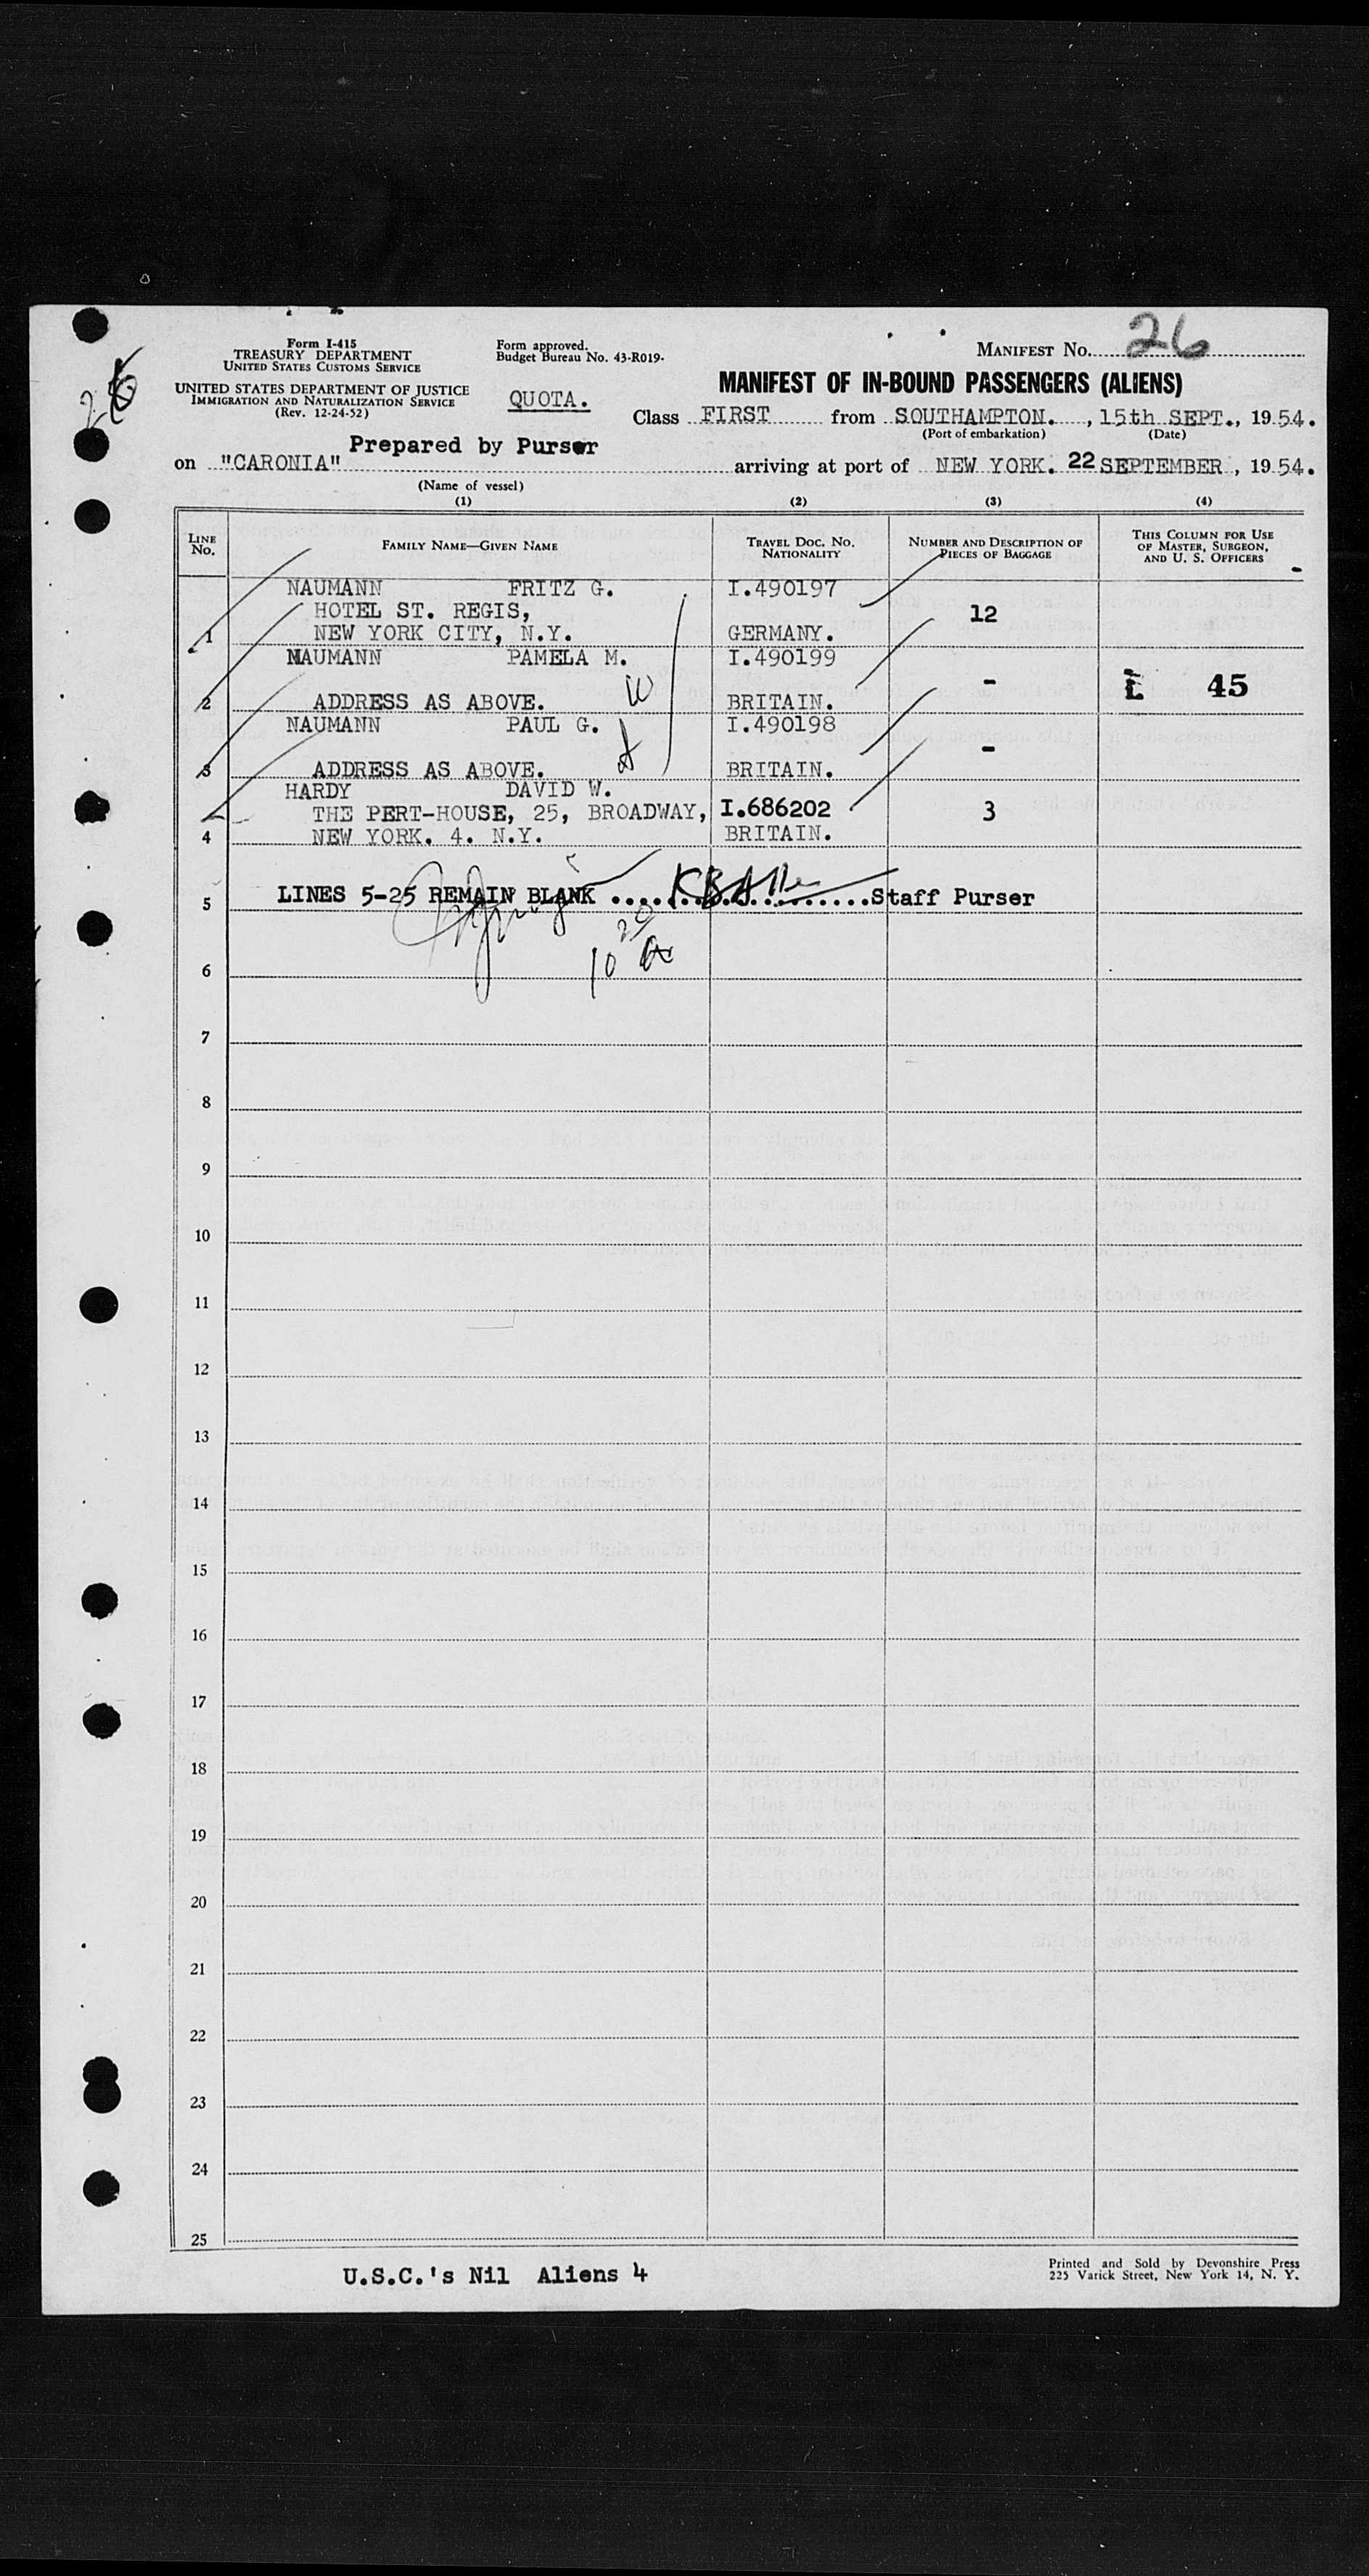 Form I-415
TREASURY DEPARTMENT
UNITED STATES CUSTOMS SERVICE
UNITED STATES DEPARTMENT OF JUSTICE
IMMIGRATION AND NATURALIZATION SERVICE
(Rev. 12-24-52)
Form approved.
Budget Bureau No. 43-R019.
QUOTA.
MANIFEST NO. 26
26
MANIFEST OF IN-BOUND PASSENGERS (ALIENS)
Class FIRST from SOUTHAMPTON. , 15th SEPT., 1954.
(Port of embarkation) (Date)
Prepared by Purser
on "CARONIA" arriving at port of NEW YORK. 22 SEPTEMBER , 1954.
(Name of vessel)
(1) (2) (3) (4)
LINE No. FAMILY NAME—GIVEN NAME TRAVEL DOC. NO. NATIONALITY NUMBER AND DESCRIPTION OF PIECES OF BAGGAGE THIS COLUMN FOR USE OF MASTER, SURGEON, AND U. S. OFFICERS
NAUMANN FRITZ G. I.490197
HOTEL ST. REGIS, 12
1 NEW YORK CITY, N.Y. GERMANY.
NAUMANN PAMELA M. I.490199
- L 45
2 ADDRESS AS ABOVE. BRITAIN.
NAUMANN PAUL G. I.490198
-
3 ADDRESS AS ABOVE. BRITAIN.
HARDY DAVID W.
THE PERT-HOUSE, 25, BROADWAY, I.686202 3
4 NEW YORK. 4. N.Y. BRITAIN.
5 LINES 5-25 REMAIN BLANK ....................Staff Purser
10 20 a
6
7
8
9
10
11
12
13
14
15
16
17
18
19
20
21
22
23
24
25
U.S.C.'s Nil Aliens 4
Printed and Sold by Devonshire Press
225 Varick Street, New York 14, N. Y.